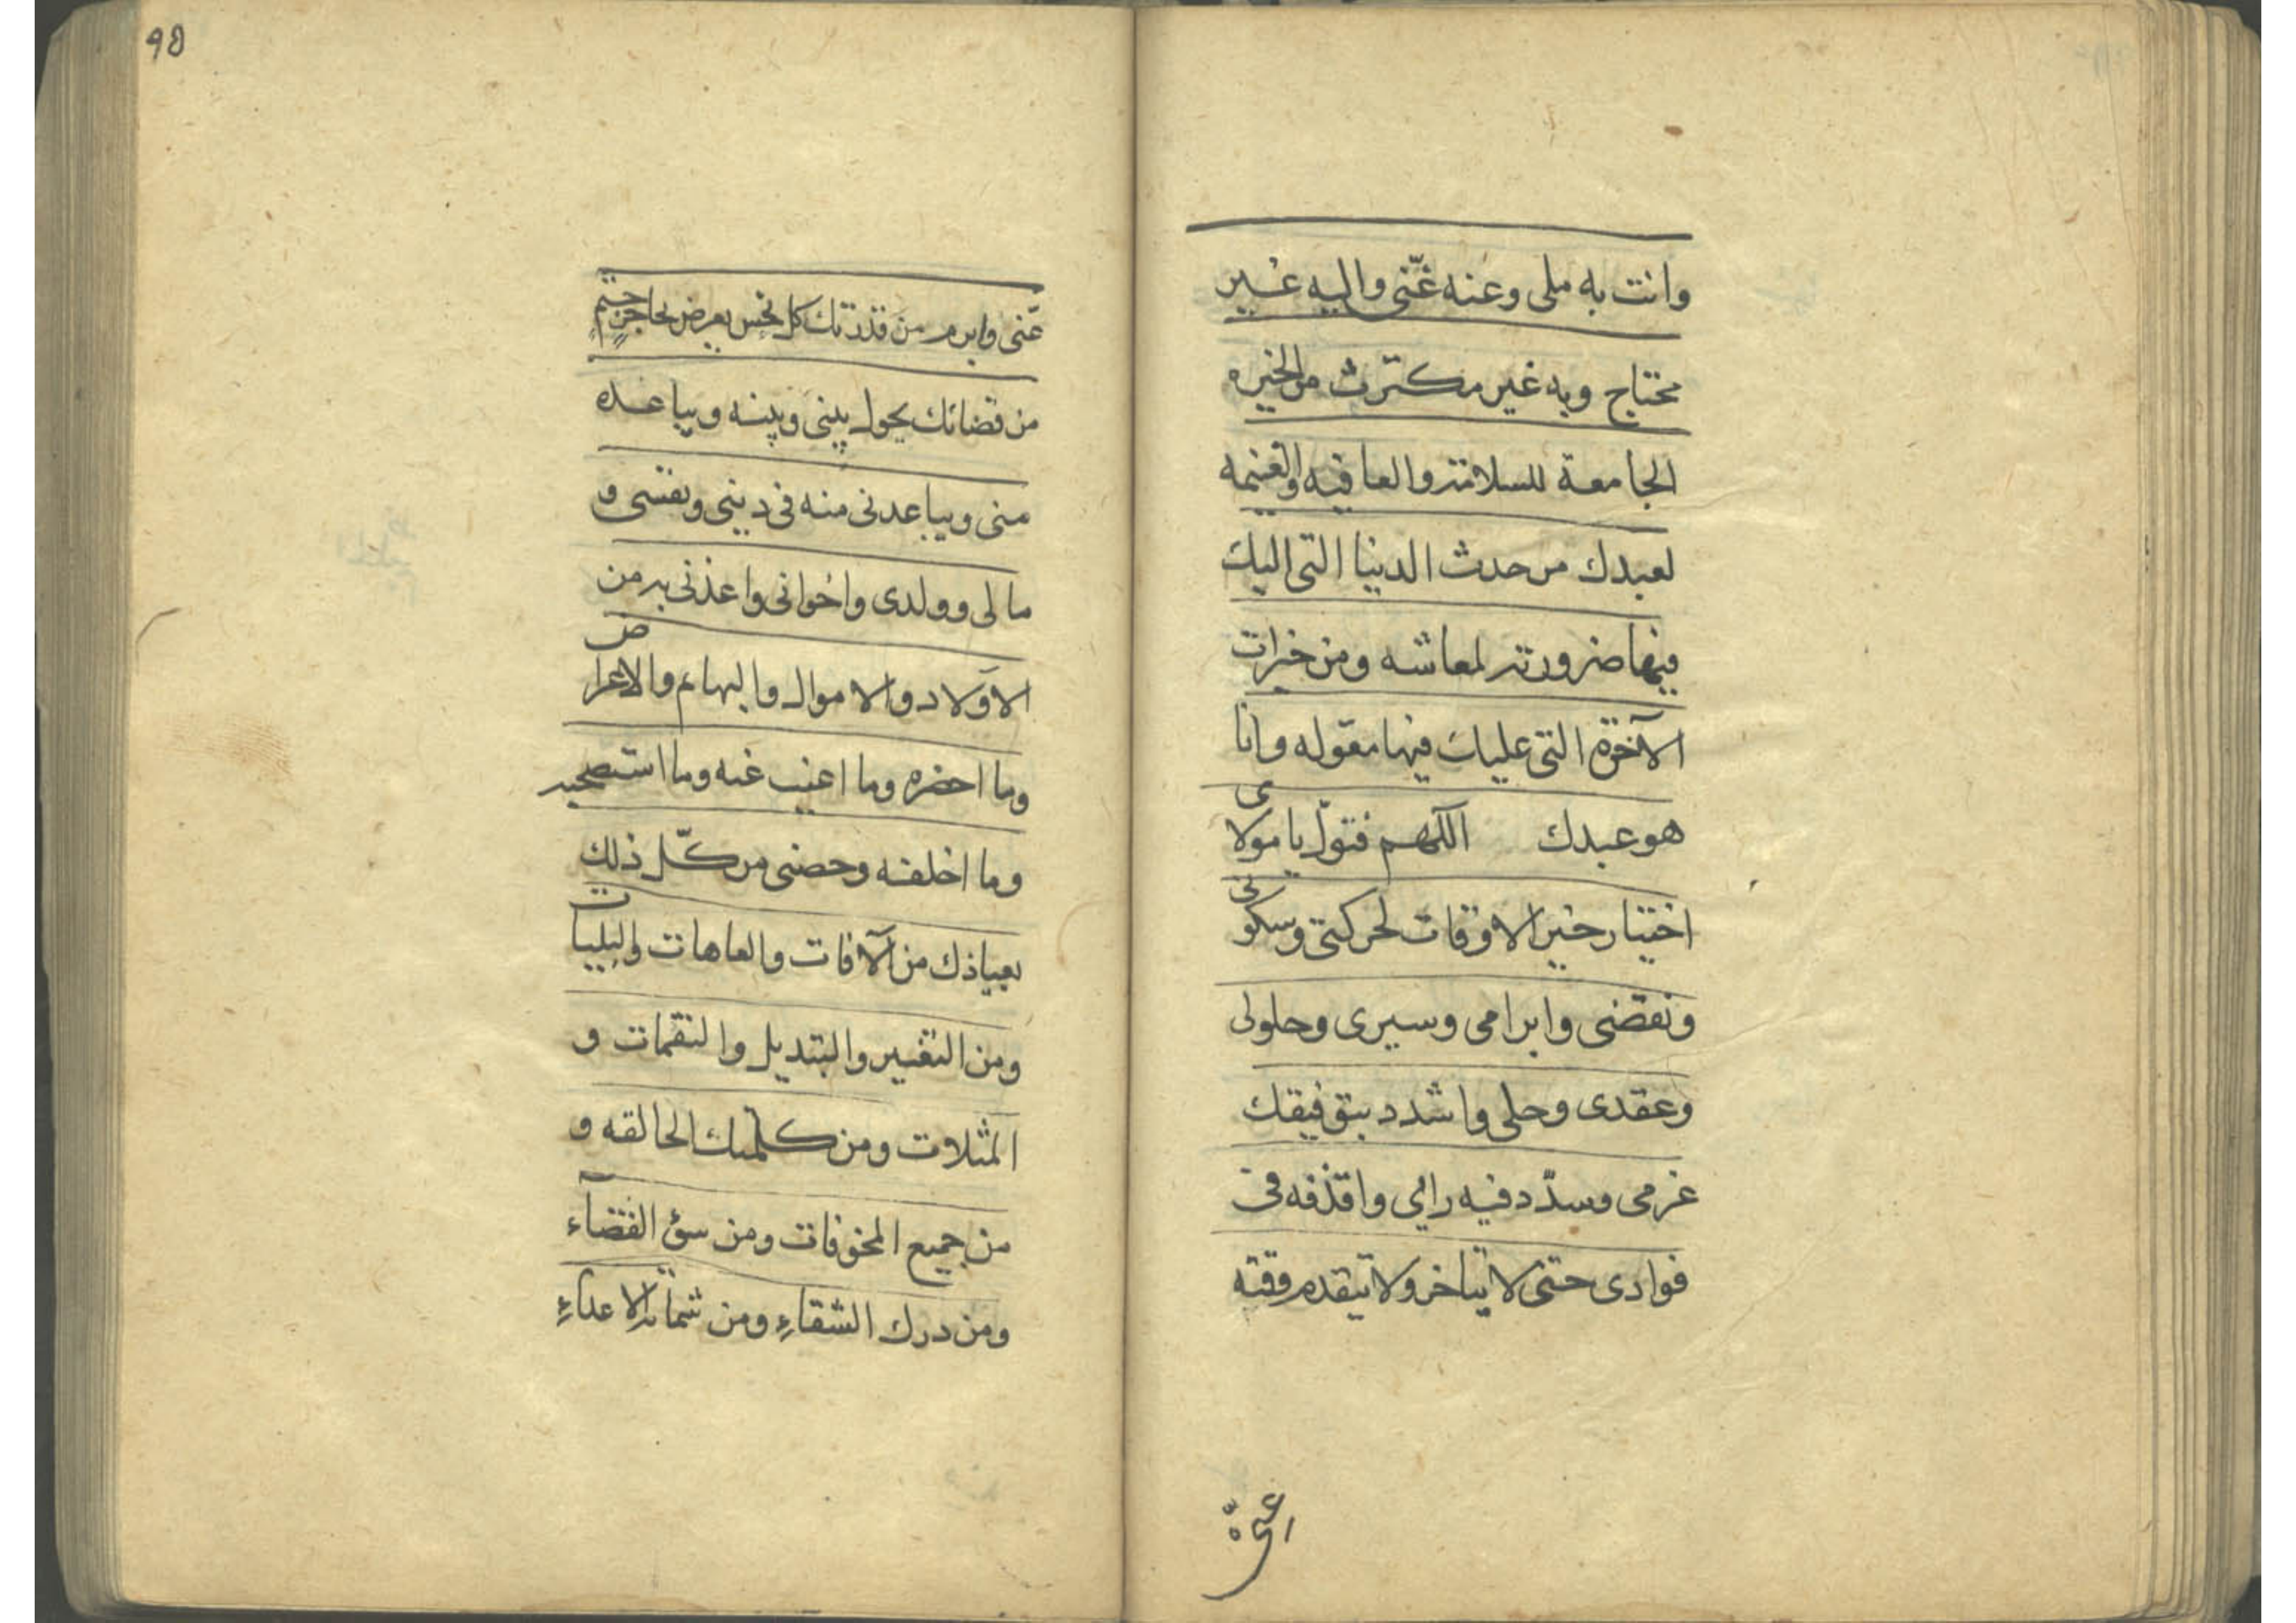 وانت به ملی وعنه غنّی والیه غیر
محتاج وبه غیر مکترث من الخیره
الجامعة للسلامة والعافیه والغنیمه
لعبدك من حدث الدنیا التی الیك
فیها ضرورته لمعاشه ومن خیرات
الآخرة التی علیك فیها معوله وانا
هو عبدك اللّهم فتولّ یا مولای
اختیار خیر الاوقات لحرکتی وسکونی
ونقضی وابرامی وسیری وحلولی
وعقدی وحلی واشدد بتوفیقك
عزمی وسدّد فیه رایی واقذفه فی
فوادی حتی لا یتاخر ولا یتقدم وقته
عنّی وابرم من قدرتك کل نحس یعرض بحاجز حتم
من قضائك یحول بینی وبینه ویباعده
منی ویباعدنی منه فی دینی ونفسی و
مالی وولدی واخوانی واعذنی به من
الاولاد والاموال والبهائم والاعراض
وما احضره وما اغیب عنه وما استصحبه
وما اخلفه وحصنی من کلّ ذلك
بعیاذك من الآفات والعاهات والبلیات
ومن التغییر والتبدیل والنقمات و
المثلات ومن کلمتك الحالقه و
من جمیع المخوفات ومن سوء القضآء
ومن درك الشقاءِ ومن شماتة الاعداءِ